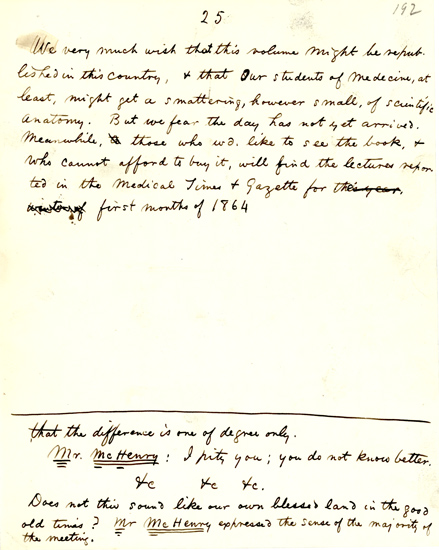 25
192
We very much wish that this volume might be repub-
lished in this country, & that our students of medecine, at
least, might get a smattering, however small, of scientific
anatomy. But we fear the day has not yet arrived.
Meanwhile, those who wd. like to see the book, &
who cannot afford to buy it, will find the lectures repor-
ted in the Medical Times & Gazette for the year,
first months of 1864
that the difference is one of degree only.
Mr. McHenry: I pity you; you do not know better.
&c &c &c.
Does not this sound like our own blessed land in the good
old times? Mr McHenry expressed the sense of the majority of
the meeting.